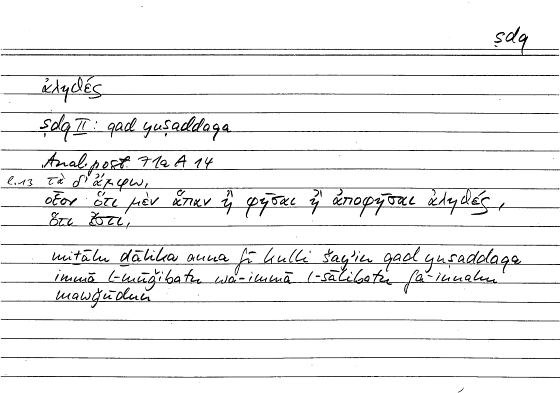 ṣdq
ἀληθές
ṣdq II: qad yuṣaddaqa
Anal. post. 71a A 14
l.13 τὰ δ' ἄμφω,
οἷον ὅτι μὲν ἅπαν ἢ φῆσαι ἢ ἀποφῆσαι ἀληθές,
ὅτι ἔστι,
miṯālu ḏālika anna fī kulli šayʾin qad yuṣaddaqa
immā l-mūǧibatu wa-immā l-sālibatu fa-innahu
mawǧūdun